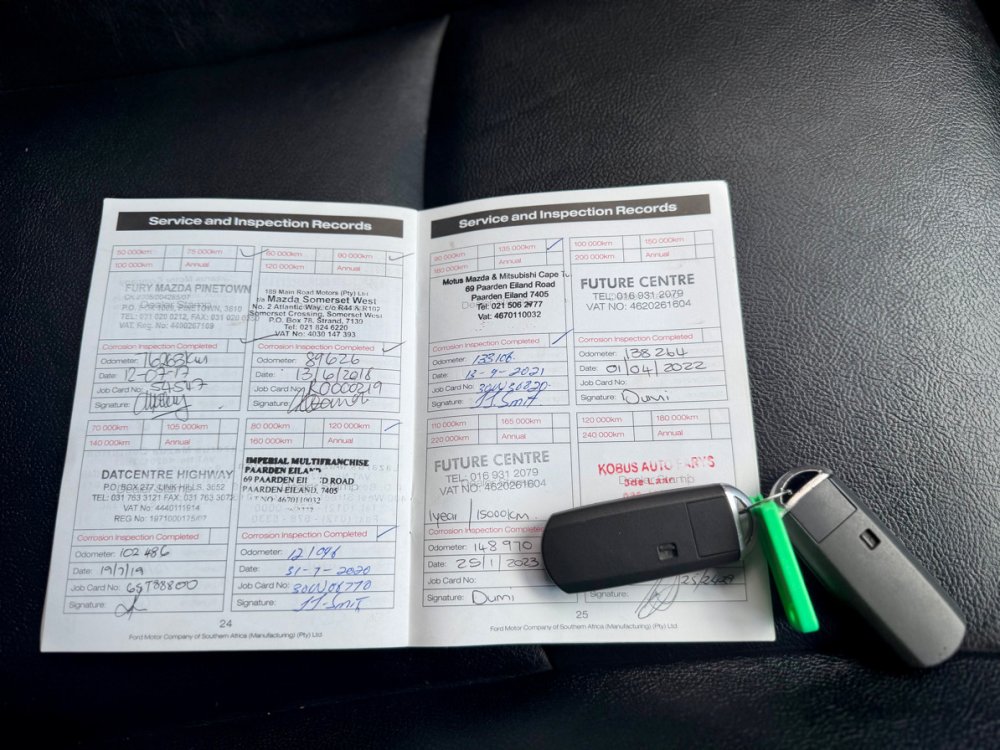 Service and Inspection Records
60 000km 75 000km
100 000km Annual
FURY MAZDA PINETOWN
P.O. BOX 1086, PINETOWN, 3610
TEL: 071 020 0212, FAX: 031 020
VAT. Reg. No: 4400267169
Corrosion Inspection Completed
Odometer:
Date: 12-07-17
Job Card No: 54547
Signature:
60 000km 90 000km
120 000km Annual
189 Main Road Motors (Pty) Ltd
t/a Mazda Somerset West
No. 2 Atlantic Way, c/o R44 & R102
Somerset Crossing, Somerset West
P.O. Box 78, Strand, 7139
Tel: 021 824 6220
VAT No: 4030 147 393
Corrosion Inspection Completed
Odometer: 89626
Date: 13/6/2018
Job Card No: R0000219
Signature:
70 000km 105 000km
140 000km Annual
DATCENTRE HIGHWAY
P.O. BOX 277, LINK HILLS, 3652
TEL: 031 763 3121 FAX: 031 763 3072
VAT No: 4440111914
REG No: 1971000175/07
Corrosion Inspection Completed
Odometer: 102 486
Date: 19/7/19
Job Card No: GST88800
Signature:
80 000km 120 000km
160 000km Annual
IMPERIAL MULTIFRANCHISE
PAARDEN EILAND
69 PAARDEN EILAND ROAD
PAARDEN EILAND, 7405
VAT NO: 4670110032
Corrosion Inspection Completed
Odometer: 121096
Date: 31-7-2020
Job Card No: 30W06770
Signature: JJ Smit
24
Ford Motor Company of Southern Africa (Manufacturing) (Pty) Ltd
Service and Inspection Records
90 000km 135 000km
180 000km Annual
Motus Mazda & Mitsubishi Cape T
69 Paarden Eiland Road
Paarden Eiland 7405
Tel: 021 506 2777
Vat: 4670110032
Corrosion Inspection Completed
Odometer: 133106
Date: 13-9-2021
Job Card No: 30W36820
Signature: JJ Smit
100 000km 150 000km
200 000km Annual
FUTURE CENTRE
TEL: 016 931 2079
VAT NO: 4620261604
Corrosion Inspection Completed
Odometer: 138 264
Date: 01/04/2022
Job Card No:
Signature: Dumi
110 000km 165 000km
220 000km Annual
FUTURE CENTRE
TEL: 016 931 2079
VAT NO: 4620261604
1year / 15000km
Corrosion Inspection Completed
Odometer: 148 970
Date: 25/1/2023
Job Card No:
Signature: Dumi
120 000km 180 000km
240 000km Annual
KOBUS AUTO PARTS
3de Laan
Signature:
25
Ford Motor Company of Southern Africa (Manufacturing) (Pty) Ltd